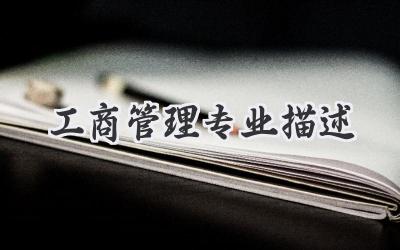 工商管理专业描述